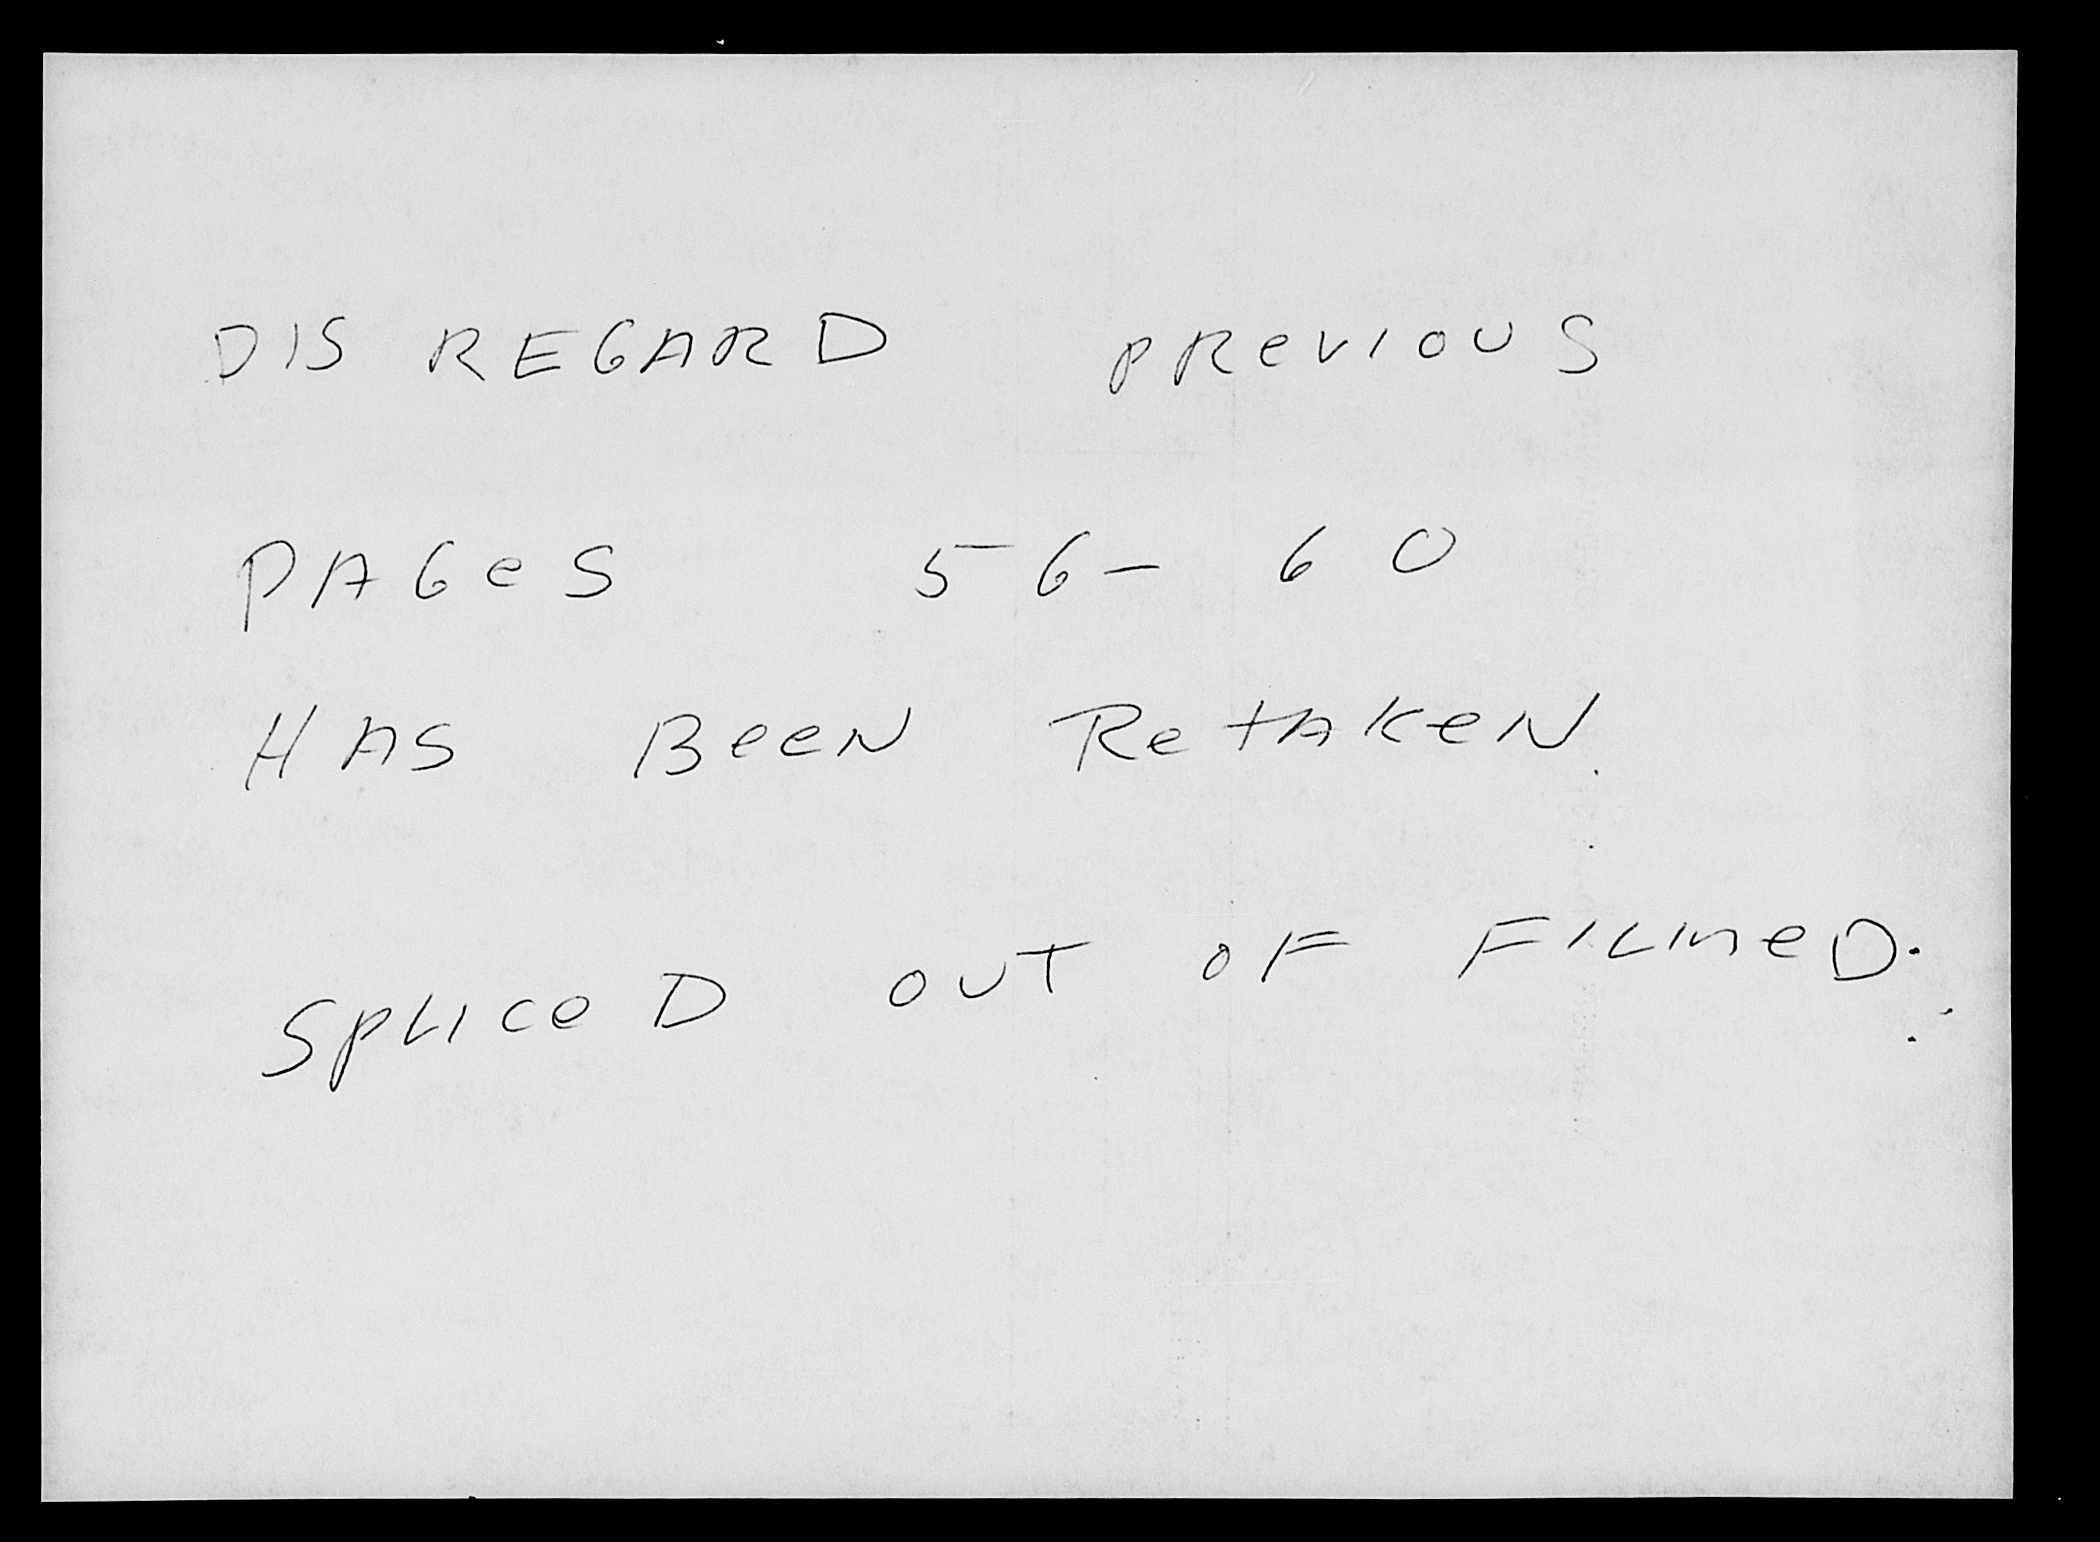 DIS REGARD PReVIOUS
PAGeS 56- 60
HAS BeeN RetAKeN.
SPLICeD OUT OF FILMeD.